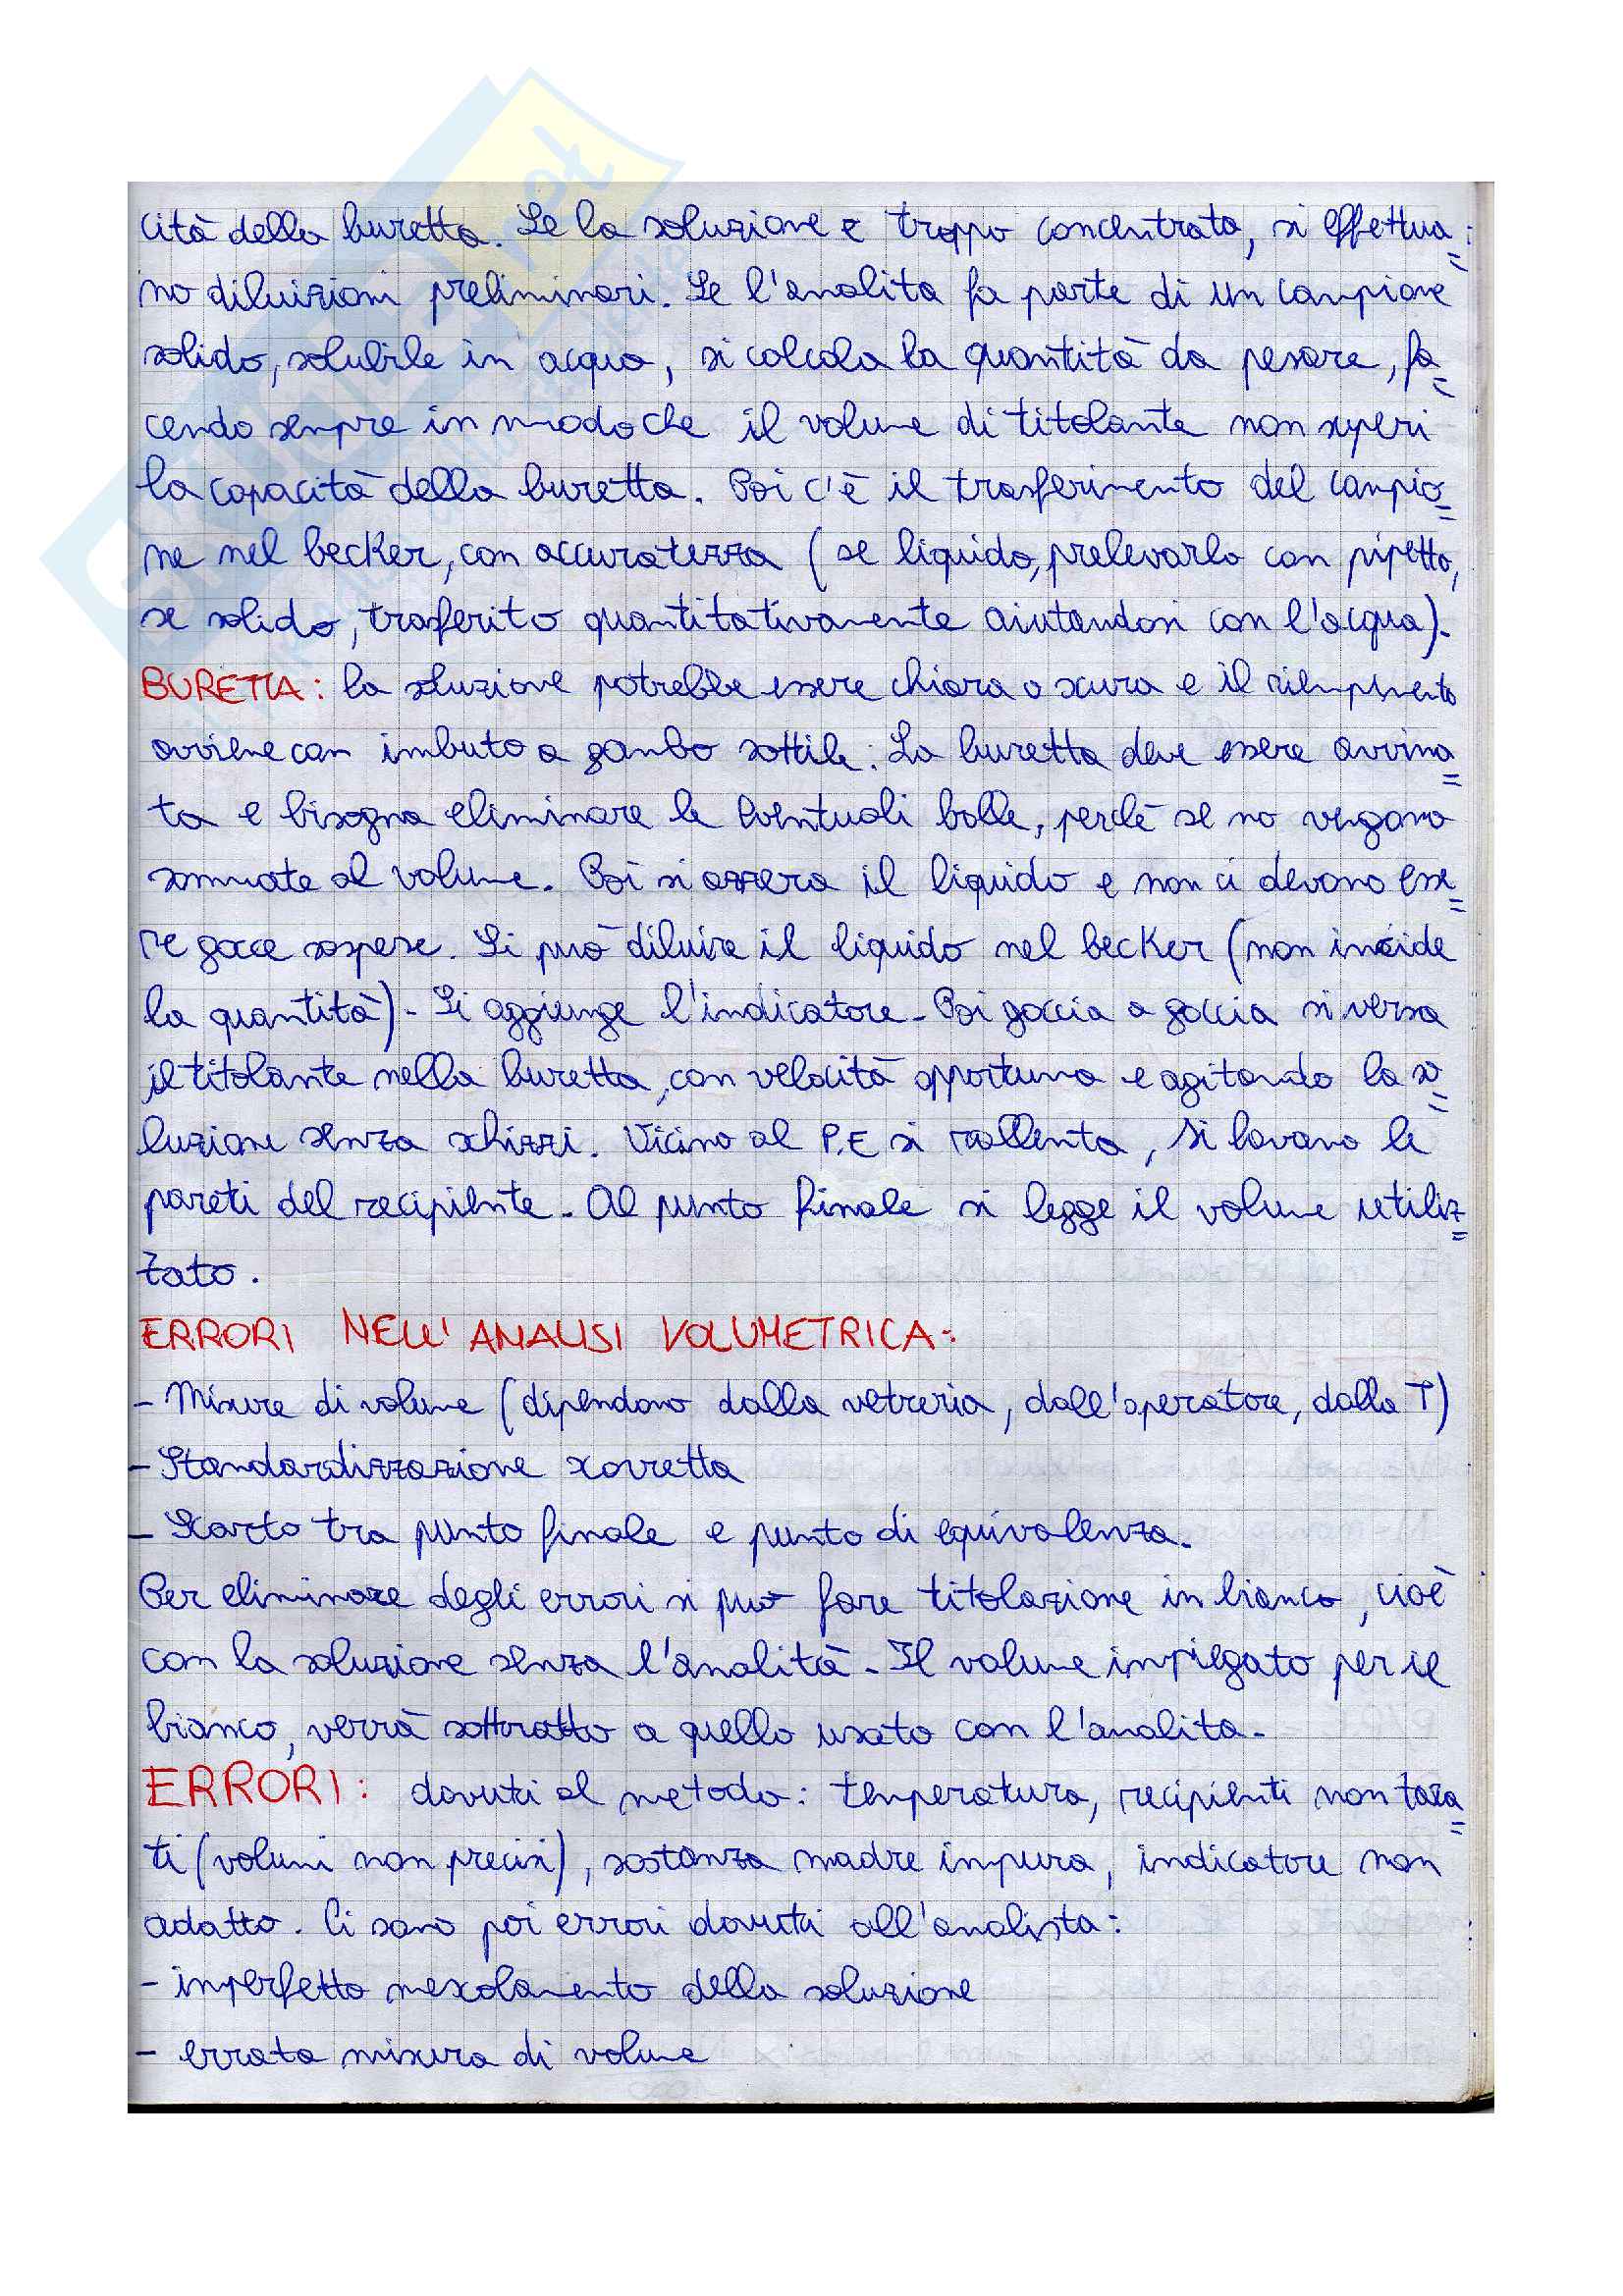 cità della buretta. Se la soluzione è troppo concentrata, si effettua=
no diluizioni preliminari. Se l'analita fa parte di un campione
solido, solubile in acqua, si calcola la quantità da pesare, fa=
cendo sempre in modo che il volume di titolante non superi
la capacità della buretta. Poi c'è il trasferimento del campio=
ne nel becker, con accuratezza (se liquido, prelevarlo con pipetta,
se solido, trasferito quantitativamente aiutandosi con l'acqua).
BURETTA: la soluzione potrebbe essere chiara o scura e il riempimento
avviene con imbuto a gambo sottile. La buretta deve essere avvina=
ta e bisogna eliminare le eventuali bolle, perchè se no vengono
sommate al volume. Poi si azzera il liquido e non ci devono esse=
re gocce sospese. Si può diluire il liquido nel becker (non incide
la quantità). Si aggiunge l'indicatore. Poi goccia a goccia si versa
il titolante nella buretta, con velocità opportuna e agitando la so=
luzione senza schizzi. Vicino al P.E si rallenta, si lavano le
pareti del recipiente. Al punto finale si legge il volume utiliz=
zato.
ERRORI NELL'ANALISI VOLUMETRICA:
- Misure di volume (dipendono dalla vetreria, dall'operatore, dalla T)
- Standardizzazione scorretta
- Scarto tra punto finale e punto di equivalenza.
Per eliminare degli errori si può fare titolazione in bianco, cioè
con la soluzione senza l'analità. Il volume impiegato per il
bianco, verrà sottratto a quello usato con l'analita.
ERRORI: dovuti al metodo: temperatura, recipienti non tara=
ti (volumi non precisi), sostanza madre impura, indicatore non
adatto. Ci sono poi errori dovuti all'analista:
- imperfetto mescolamento della soluzione
- errata misura di volume